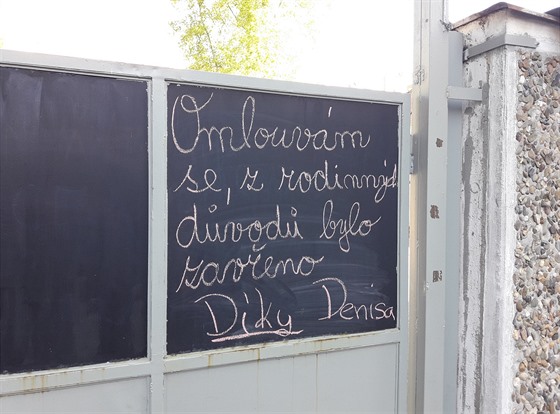 Omlouvám
se, z rodinných
důvodů bylo
zavřeno
Díky Denisa